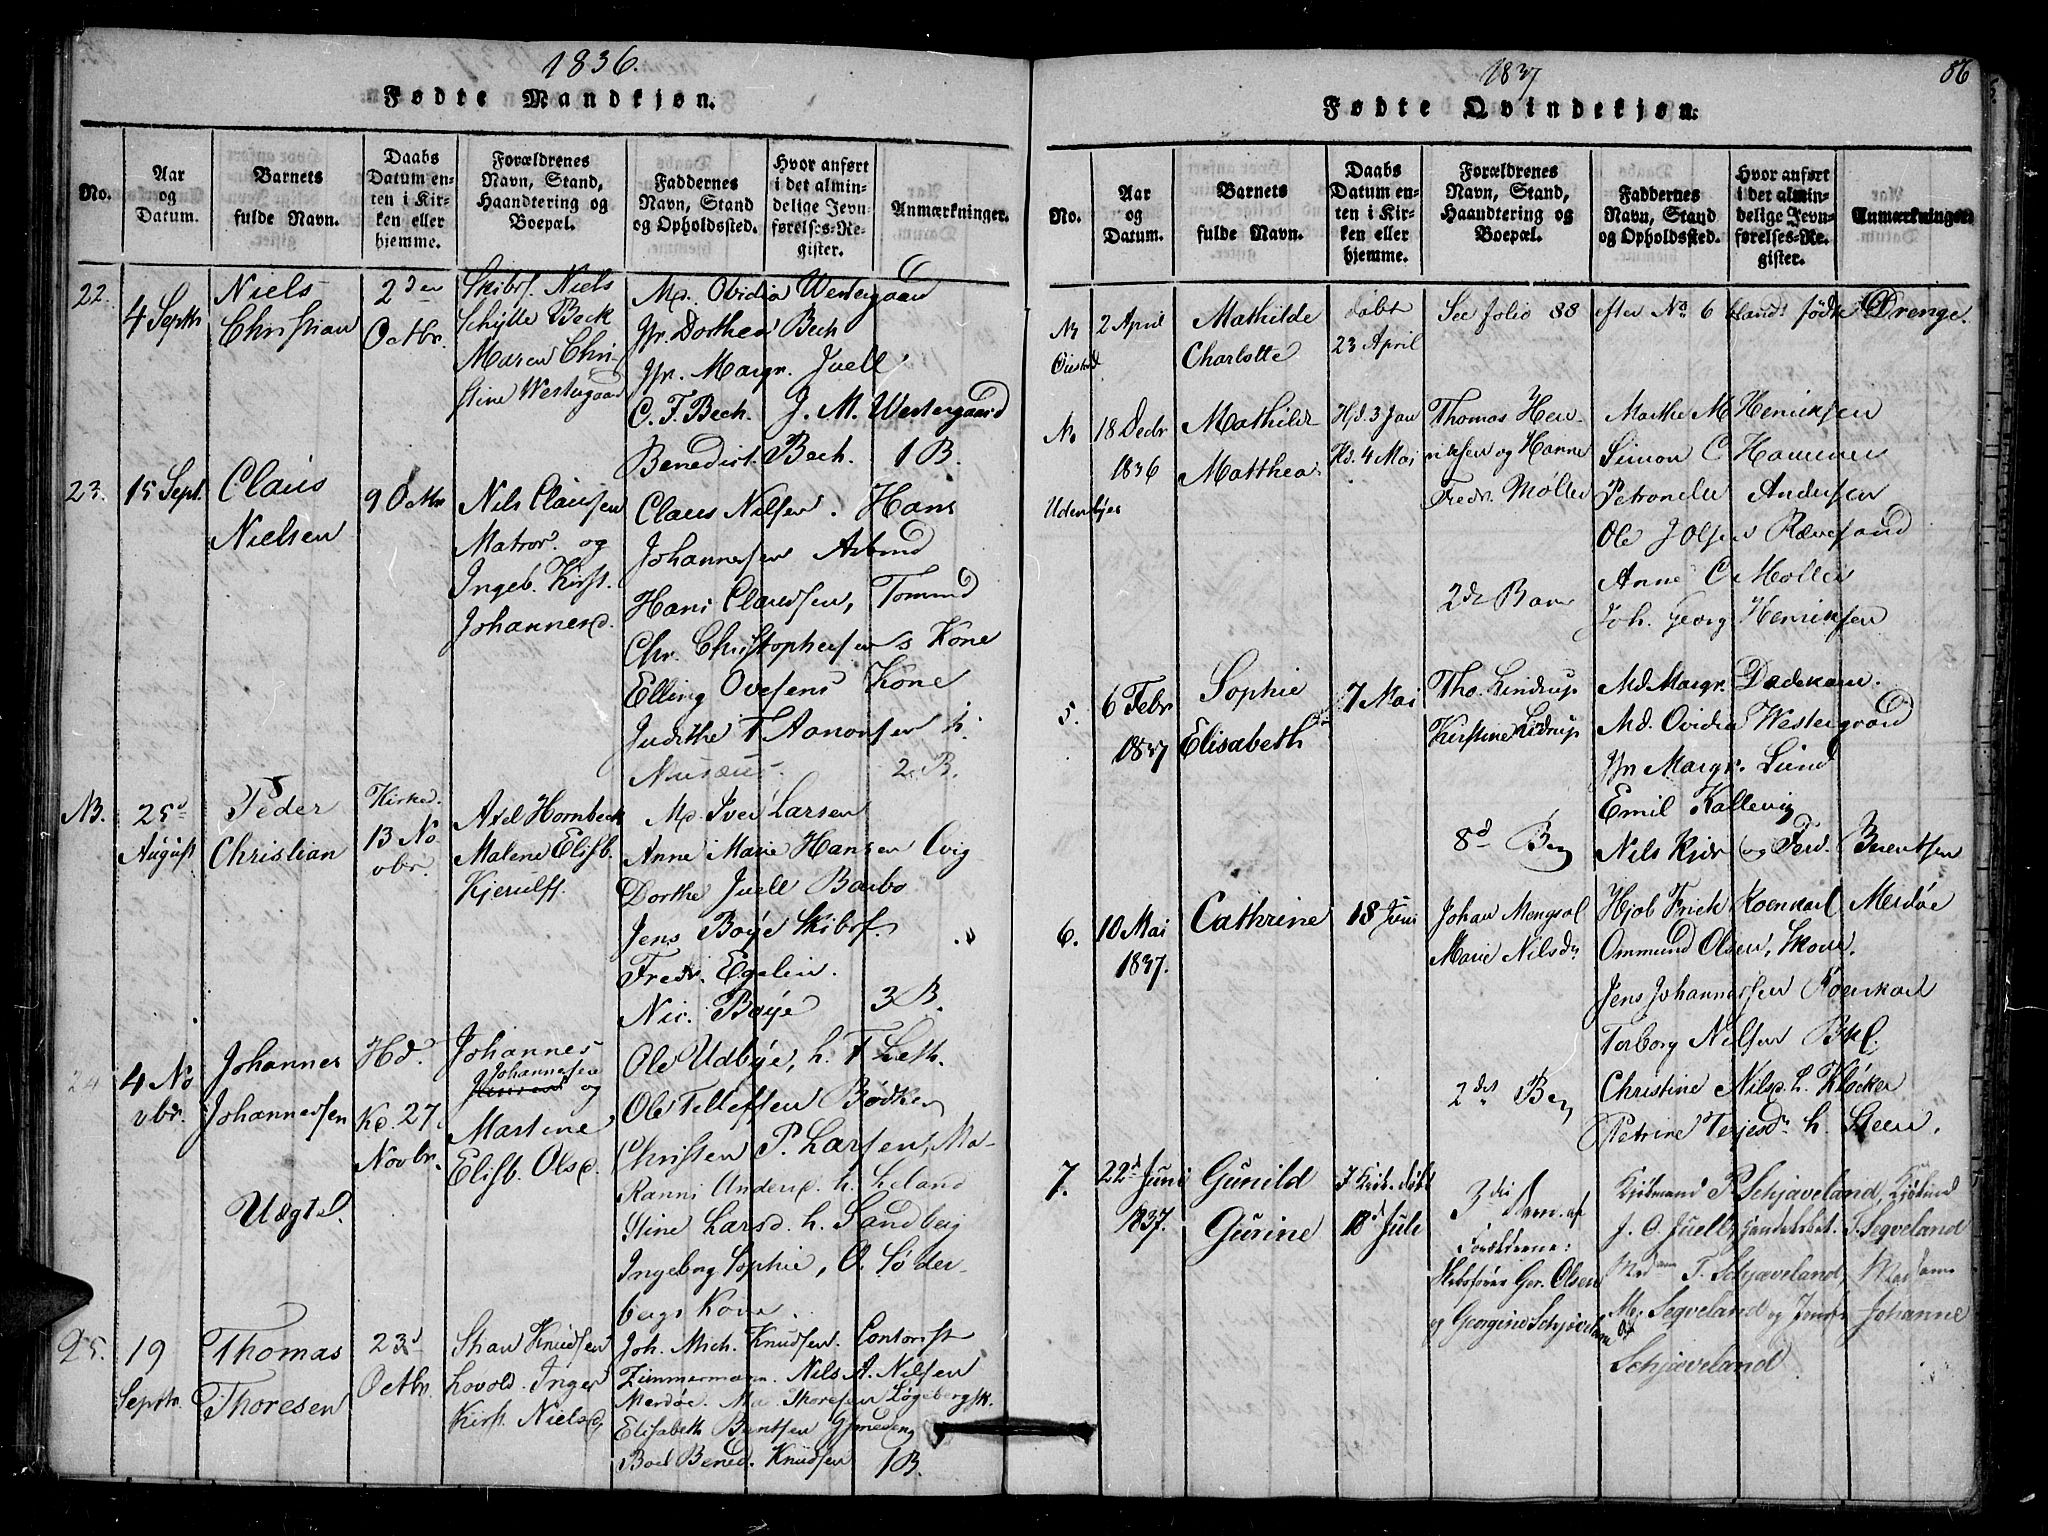 1836.
Fødte Mandkjøn.
No.
Aar og Datum.
Barnets fulde Navn.
Daabs Datum enten i Kirken eller hjemme.
Forældrenes Navn, Stand, Haandtering og Boepæl.
Faddernes Navn, Stand og Opholdssted.
Hvor anført i det almindelige Jevnførelses-Register.
Anmærkninger.
22.
4 Septbr
Niels
Christian
2den
Octbr.
Skibsf. Niels
Schytte Beck
Maren Chri-
stine Westergaard
Md. Ovidia Westergaard
Jfr. Dorthea Bech
Jfr. Margr. Juell
C. F. Bech. J. M. Westergaard
Benedict. Bech. 1 B.
23.
15 Sept.
Claus
Nielsen
9 Octbr
Nils Clausen
Matros. og
Ingeb. Kirst.
Johannesd.
Claus Nilsen. Hans
Johannesen Asbmd
Hans Claussen, Tommd
Chr. Christophersens Kone
Elling Ovesens Kone
Judithe T Aanonsen h.
Nusæus. 2. B.
NB.
25d
August
Peder
Christian
Kirked.
13 No
vbr.
Axel Hornbech
Malene Elisb.
Kjerulff.
Md. Iver Larsen
Anne Marie Hansen Qvig
Dorthe Juell Barbo
Jens Boye Skibsf.
Fredr. Egelin.
Nic. Boye 3 B.
24
4 No
vbr.
Johannes
Johannessen
Hd.
Kd. 27.
Novbr.
Johannes
Johannesen
og
Martine
Elisb. Olsd.
Ole Udbye, h. T Leth.
Ole Tellefsen Bødker
Christen P. Larsen, Ma-
Ranni Andersd. h. Leland
Stine Larsd. h. Sandberg
Ingeborg Sophie, O. Söder-
bergs Kone.
Uægte.
25.
19
Septbr.
Thomas
Thoresen
23d
Octbr.
Knudsen
Lovold. Inger
Kirst. Nielsd.
Joh. Mich. Knudsen. Contorist
Zimmermann. Nils A. Nilsen
Merdøe. Thoresen Løgebergsk.
Elisabeth Berntsen
Boel Bened. Knudsen 1 B.
1837
86
Fødte Qvindekjøn.
No.
Aar og Datum.
Barnets fulde Navn.
Daabs Datum enten i Kirken eller hjemme.
Forældrenes Navn, Stand, Haandtering og Boepæl.
Faddernes Navn, Stand og Opholdssted.
Hvor anført i det almindelige Jevnførelses-Register.
Anmærkninger.
NB
Øiestad
2 April
Mathilde
Charlotte
døbt
23 April
See folio 88 efter No. 6 blandt fødte Drenge.
No
Udenbyes
18 Decbr
1836
Mathilde
Matthea
Hd. 3 Jan
Kd. 4 Mai
Thomas Hen-
riksen og Hanne
Fredr. Møller
2det Barn
Marthe M Henriksen
Simon C Hammer
Petronelle Andersen
Ole J Olsen Rævesand
Anne C Møller
Joh. Georg Henriksen
5.
6 Febr
1837
Sophie
Elisabeth
7 Mai
Tho. Lindrup
Kirstine Lindrup
8d Barn
Md. Margr. Dedekam.
Md. Ovidia Westergrard
Jfr Margr. Lund
Emil Kallevig
Nils Kiær og Ferd. Berentsen
6.
10 Mai
1837.
Cathrine
18 Juni
Johan Mengsol
Marie Nilsdr
2det Barn
Hjob Frick Koenkarl Merdøe
Ommund Olsen, Skom.
Jens Johannessen Röenkarl
Torborg Nilsen Bkl.
Christine Nilsd. h. Klöcker
Petrine Terjesdr. h. Steen.
7.
22d Juni
1837.
Gunild
Gurine
I Kirken døbt
18d Juli
3die Barn af
Forældrene:
Skibsfører Ger. Olsen
og Georgine Schjæveland
Kjøbmand P. Schjæveland, Kjøbmd
J. O Juell, T. Segveland
Madam T. Schjæveland, Madame
M. Segveland og Jomfr Johanne
Schjæveland.